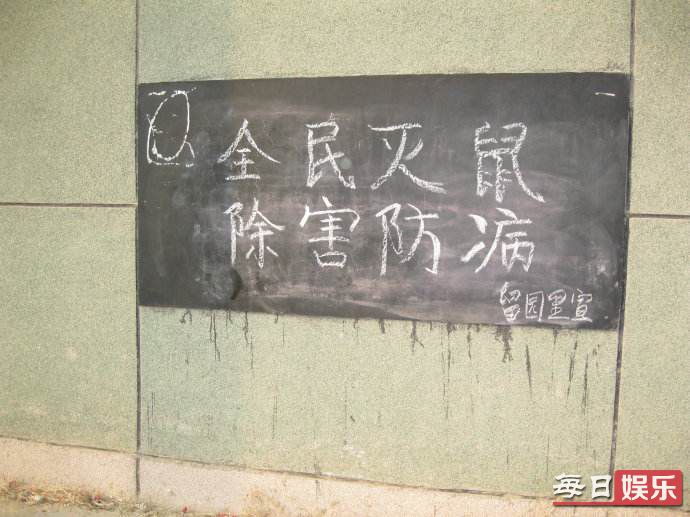 全民灭鼠
除害防病
留园里宣
每日娱乐